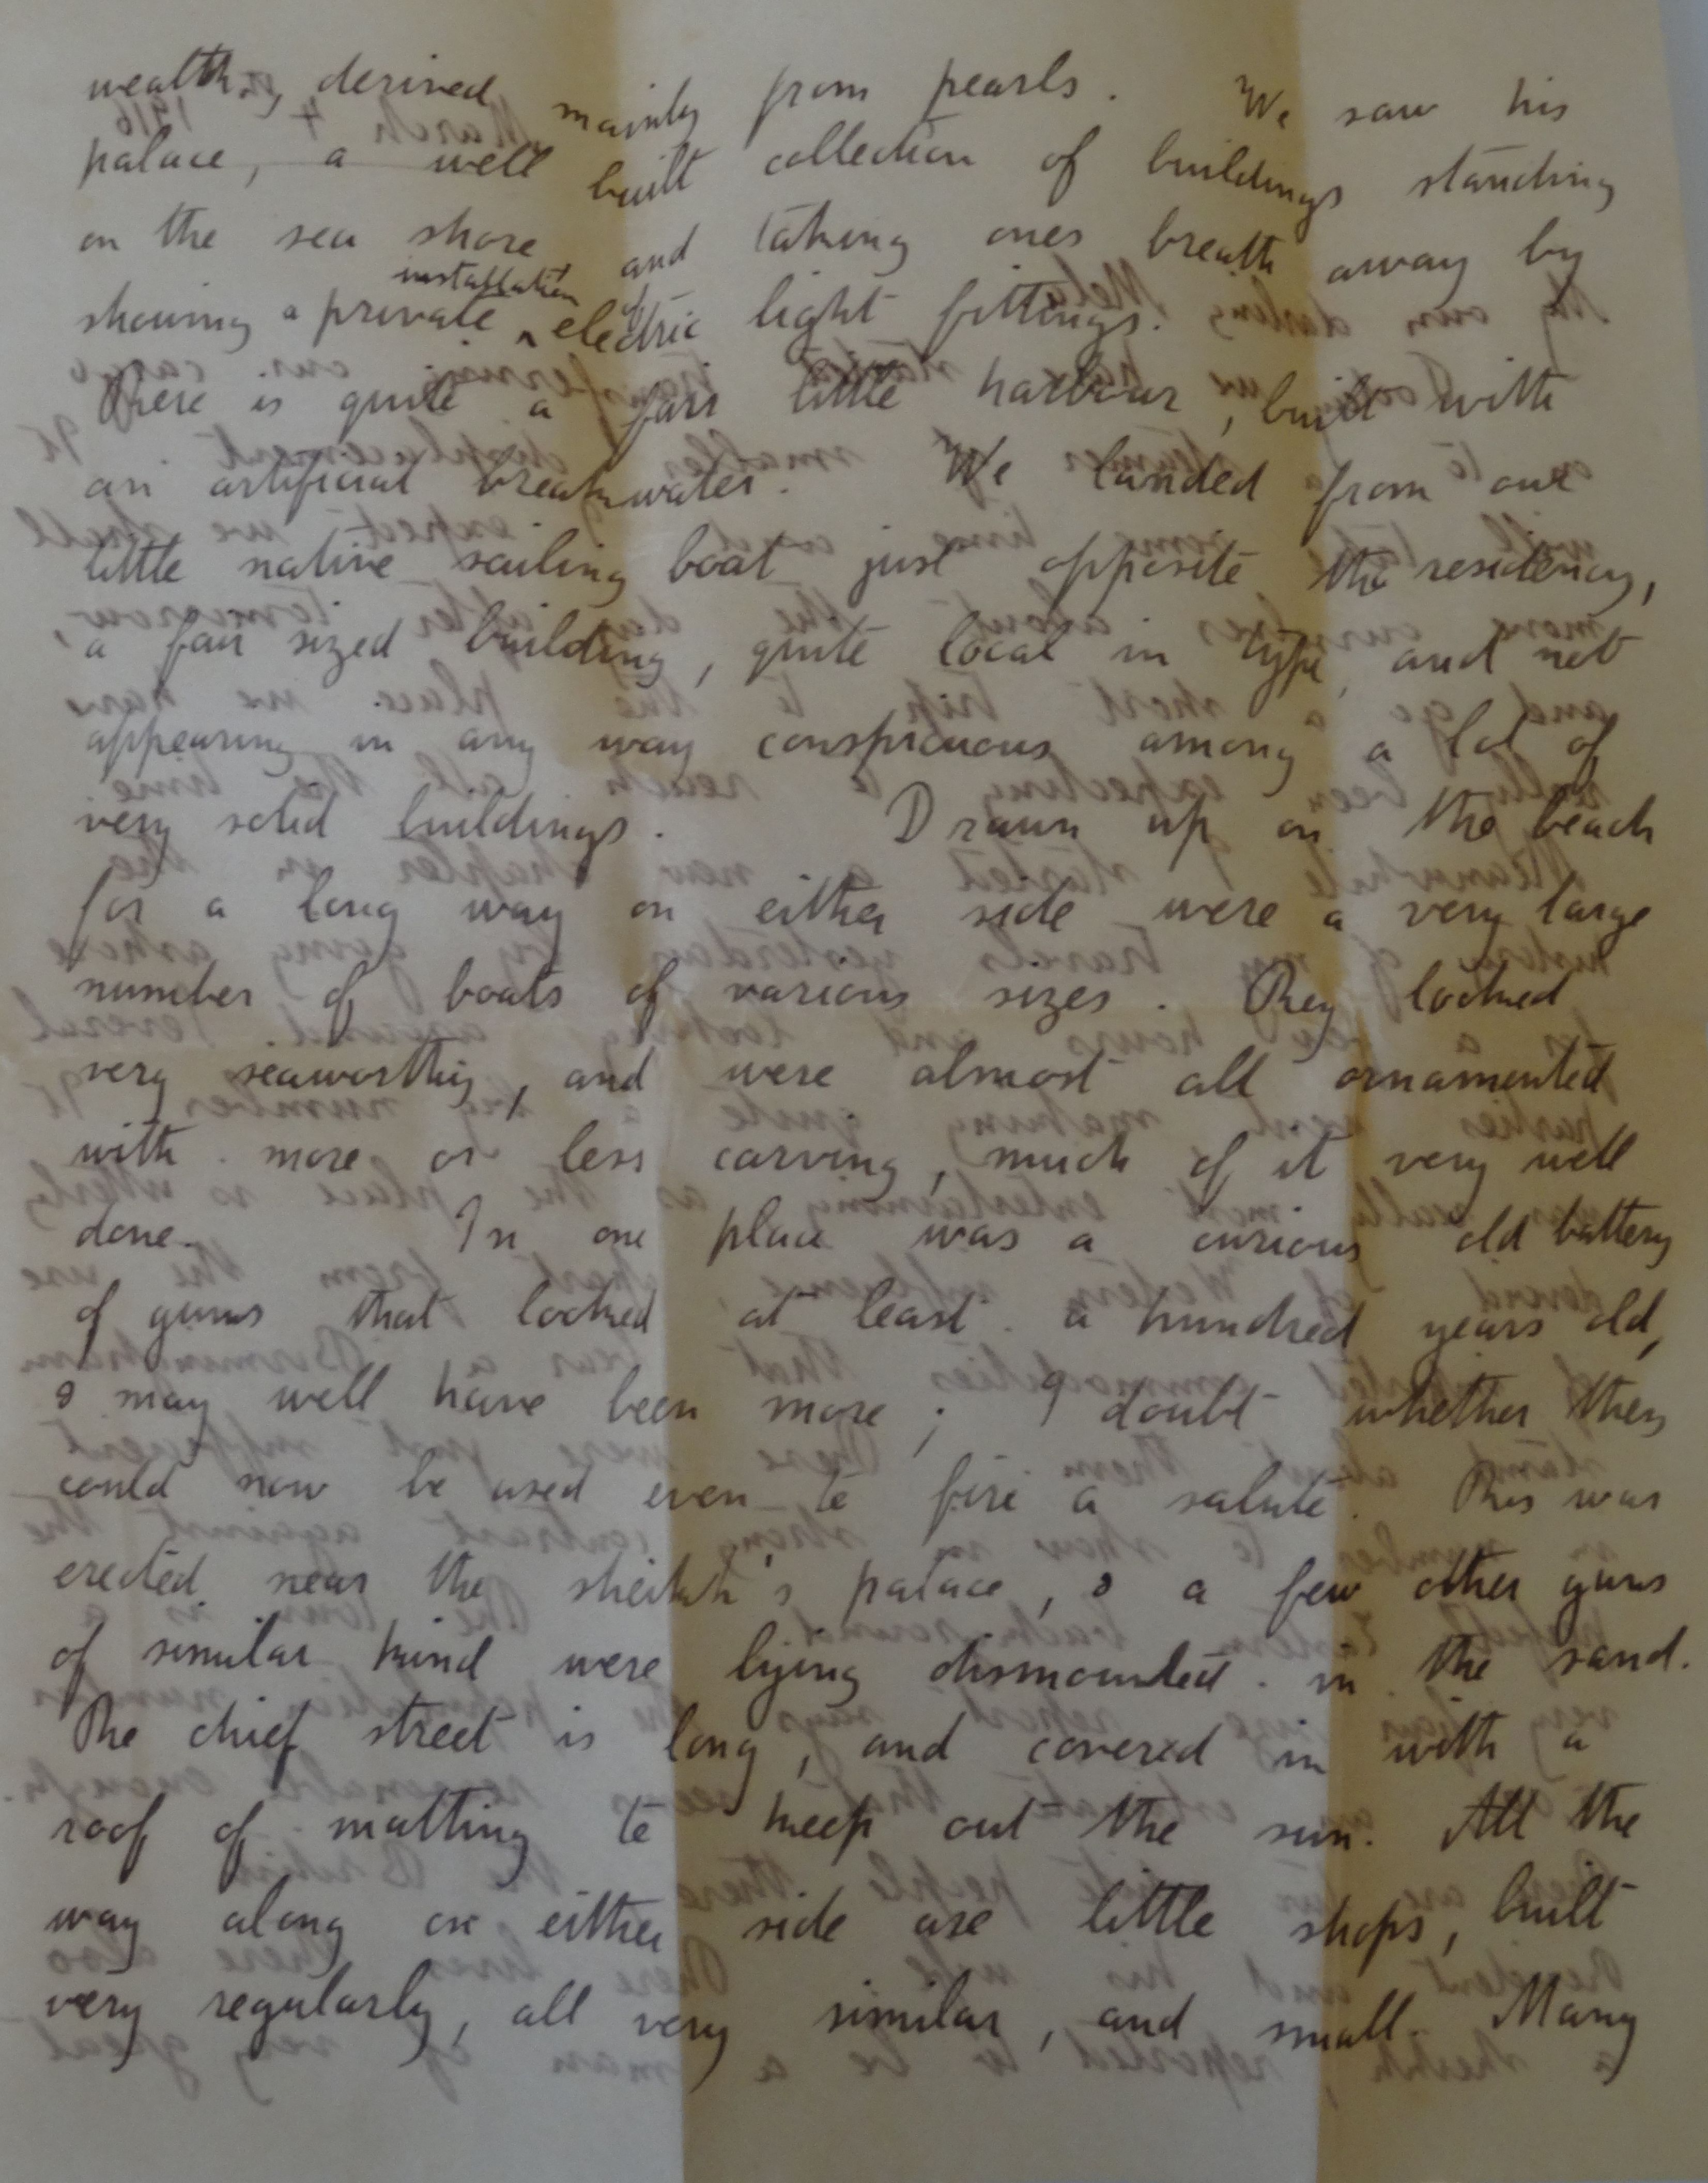 wealth, derived mainly from pearls. We saw his
palace, a well built collection of buildings standing
on the sea shore and taking ones breath away by
showing a private ^ installation of electric light fittings.
There is quite a fair little harbour, built with
an artificial breakwater. We landed from our
little native sailing boat just opposite the residency,
a fair sized building, quite local in type, and not
appearing in any way conspicuous among a lot of
very solid buildings. Drawn up on the beach
for a long way on either side were a very large
number of boats of various sizes. They looked
very seaworthy, and were almost all ornamented
with more or less carving, much of it very well
done. In one place was a curious old battery
of guns that looked at least a hundred years old,
& may well have been more; I doubt whether they
could now be used even to fire a salute. This was
erected near the sheikh's palace, & a few other guns
of similar kind were lying dismounted in the sand.
The chief street is long, and covered in with a
roof of matting to keep out the sun. All the
way along on either side are little shops, built
very regularly, all very similar, and small. Many